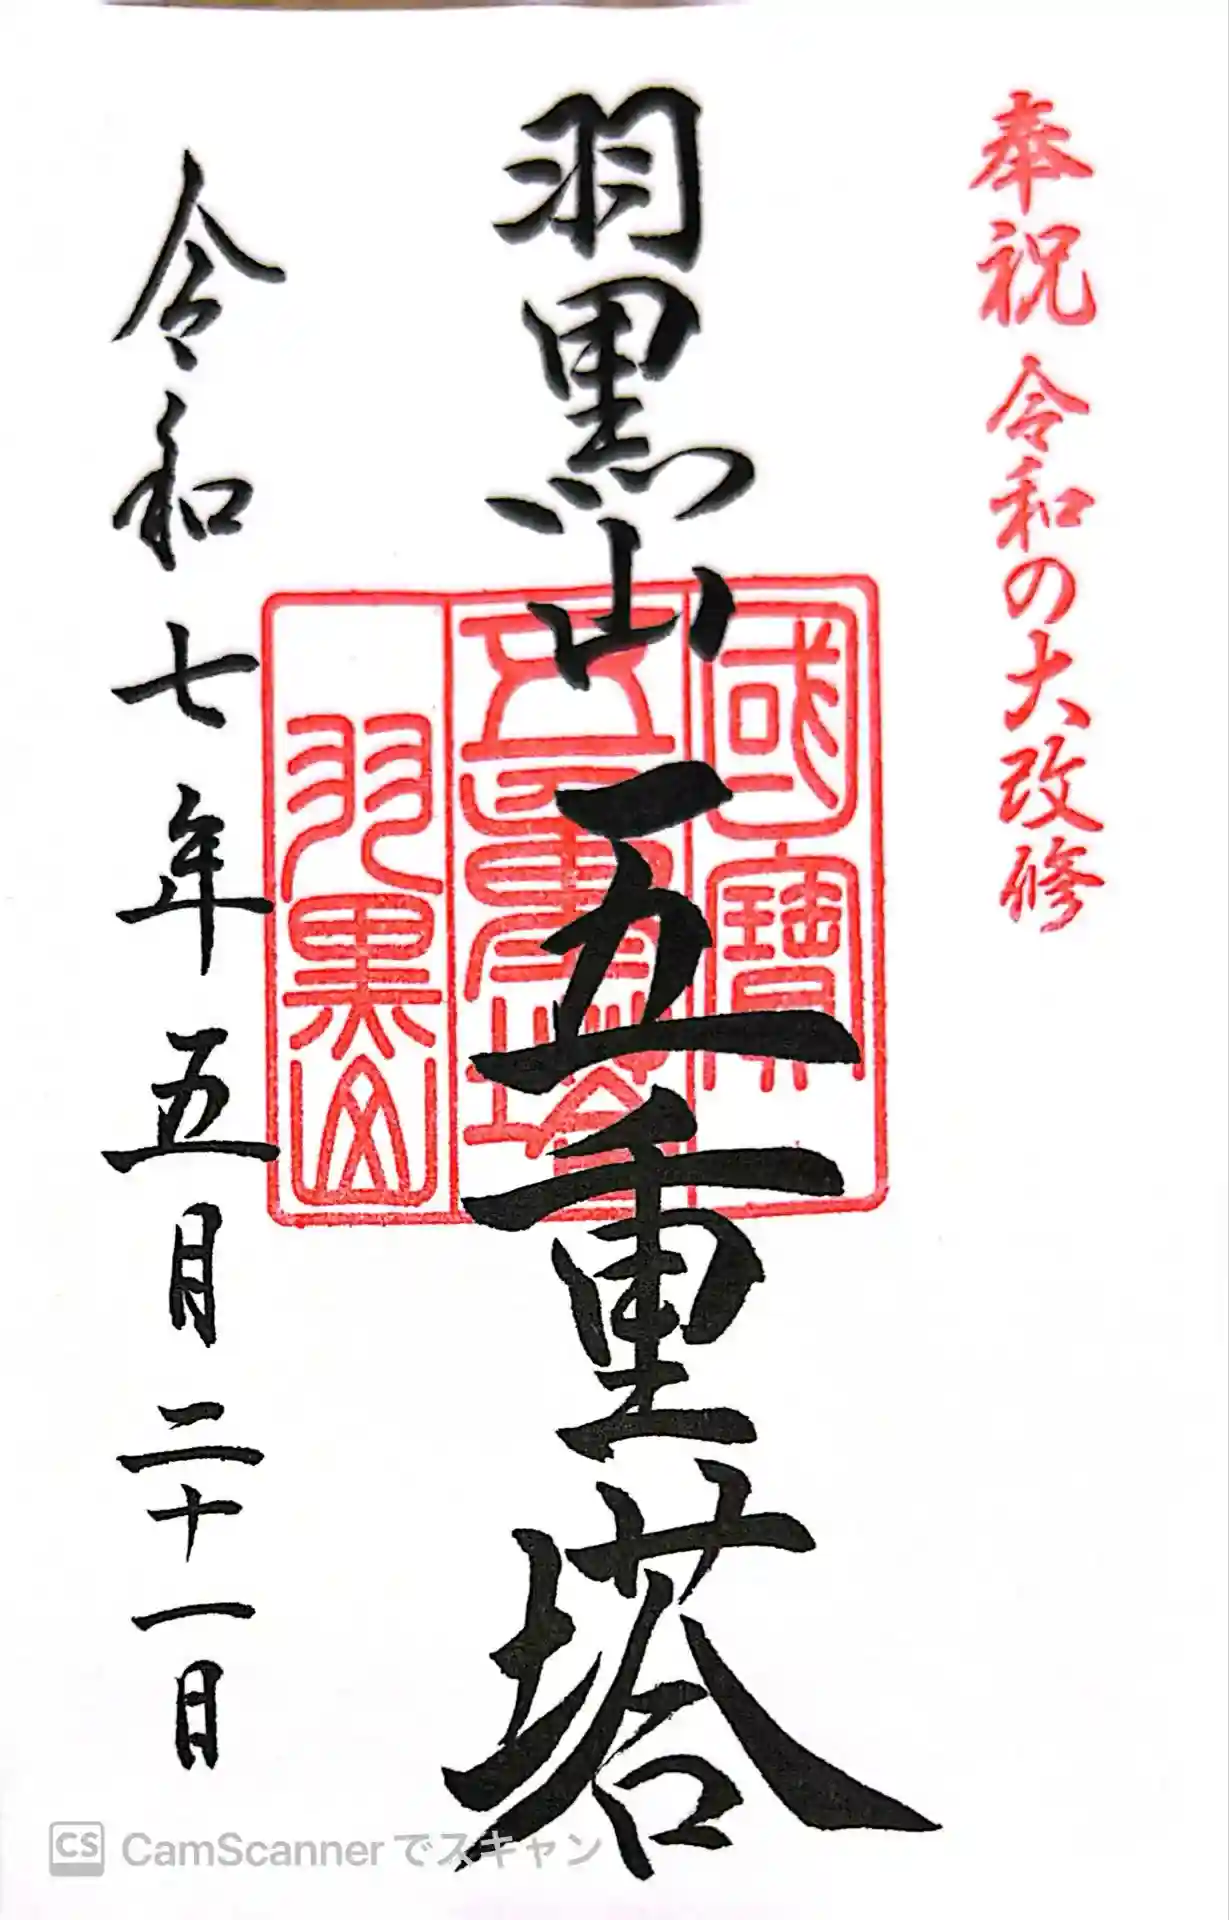 奉祝 令和の大改修
羽黒山 五重塔
國寶
五重塔
羽黒山
令和七年五月二十一日
CS CamScannerでスキャン